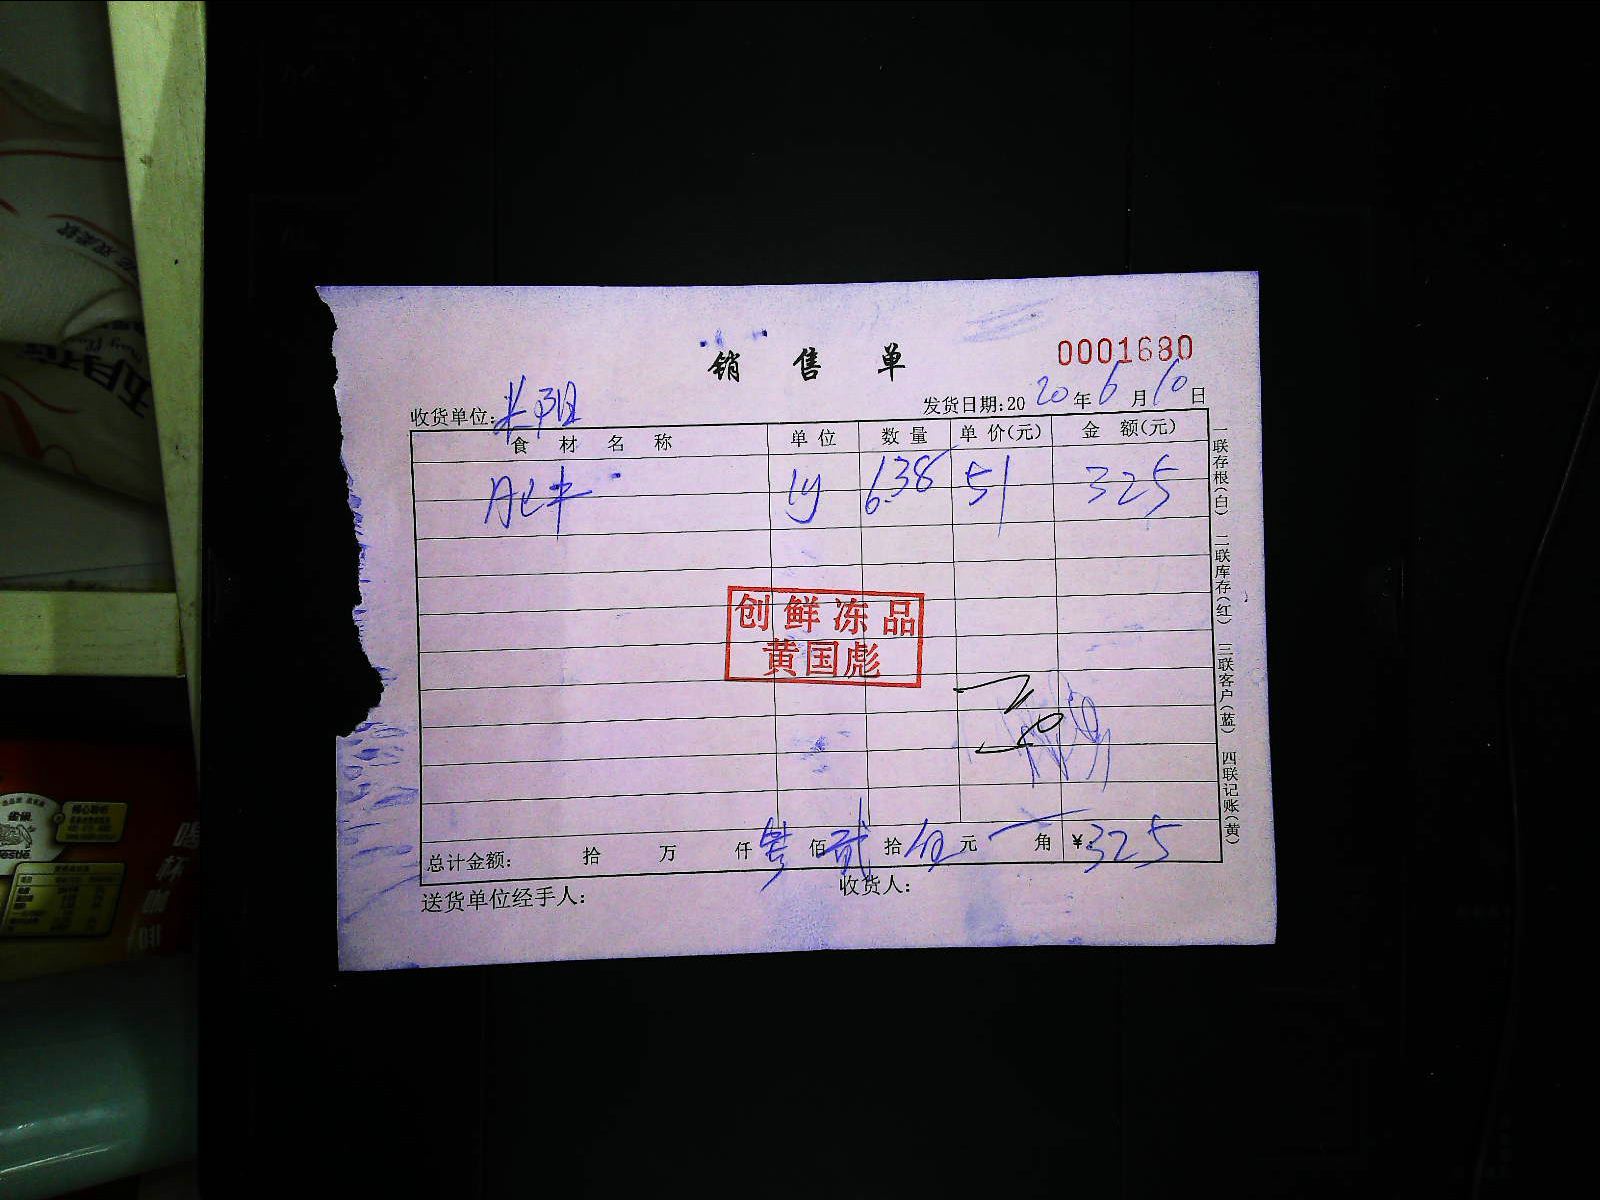 销售单
0001680
收货单位:
发货日期:2020年6月10日
食材名称 单位 数量 单价(元) 金额(元)
肥牛 6.38 51 325
创鲜冻品
黄国彪
总计金额: 拾 万 仟叁佰贰拾伍元 角 ¥:325
送货单位经手人: 收货人:
一联存根(白) 二联库存(红) 三联客户(蓝) 四联记账(黄)